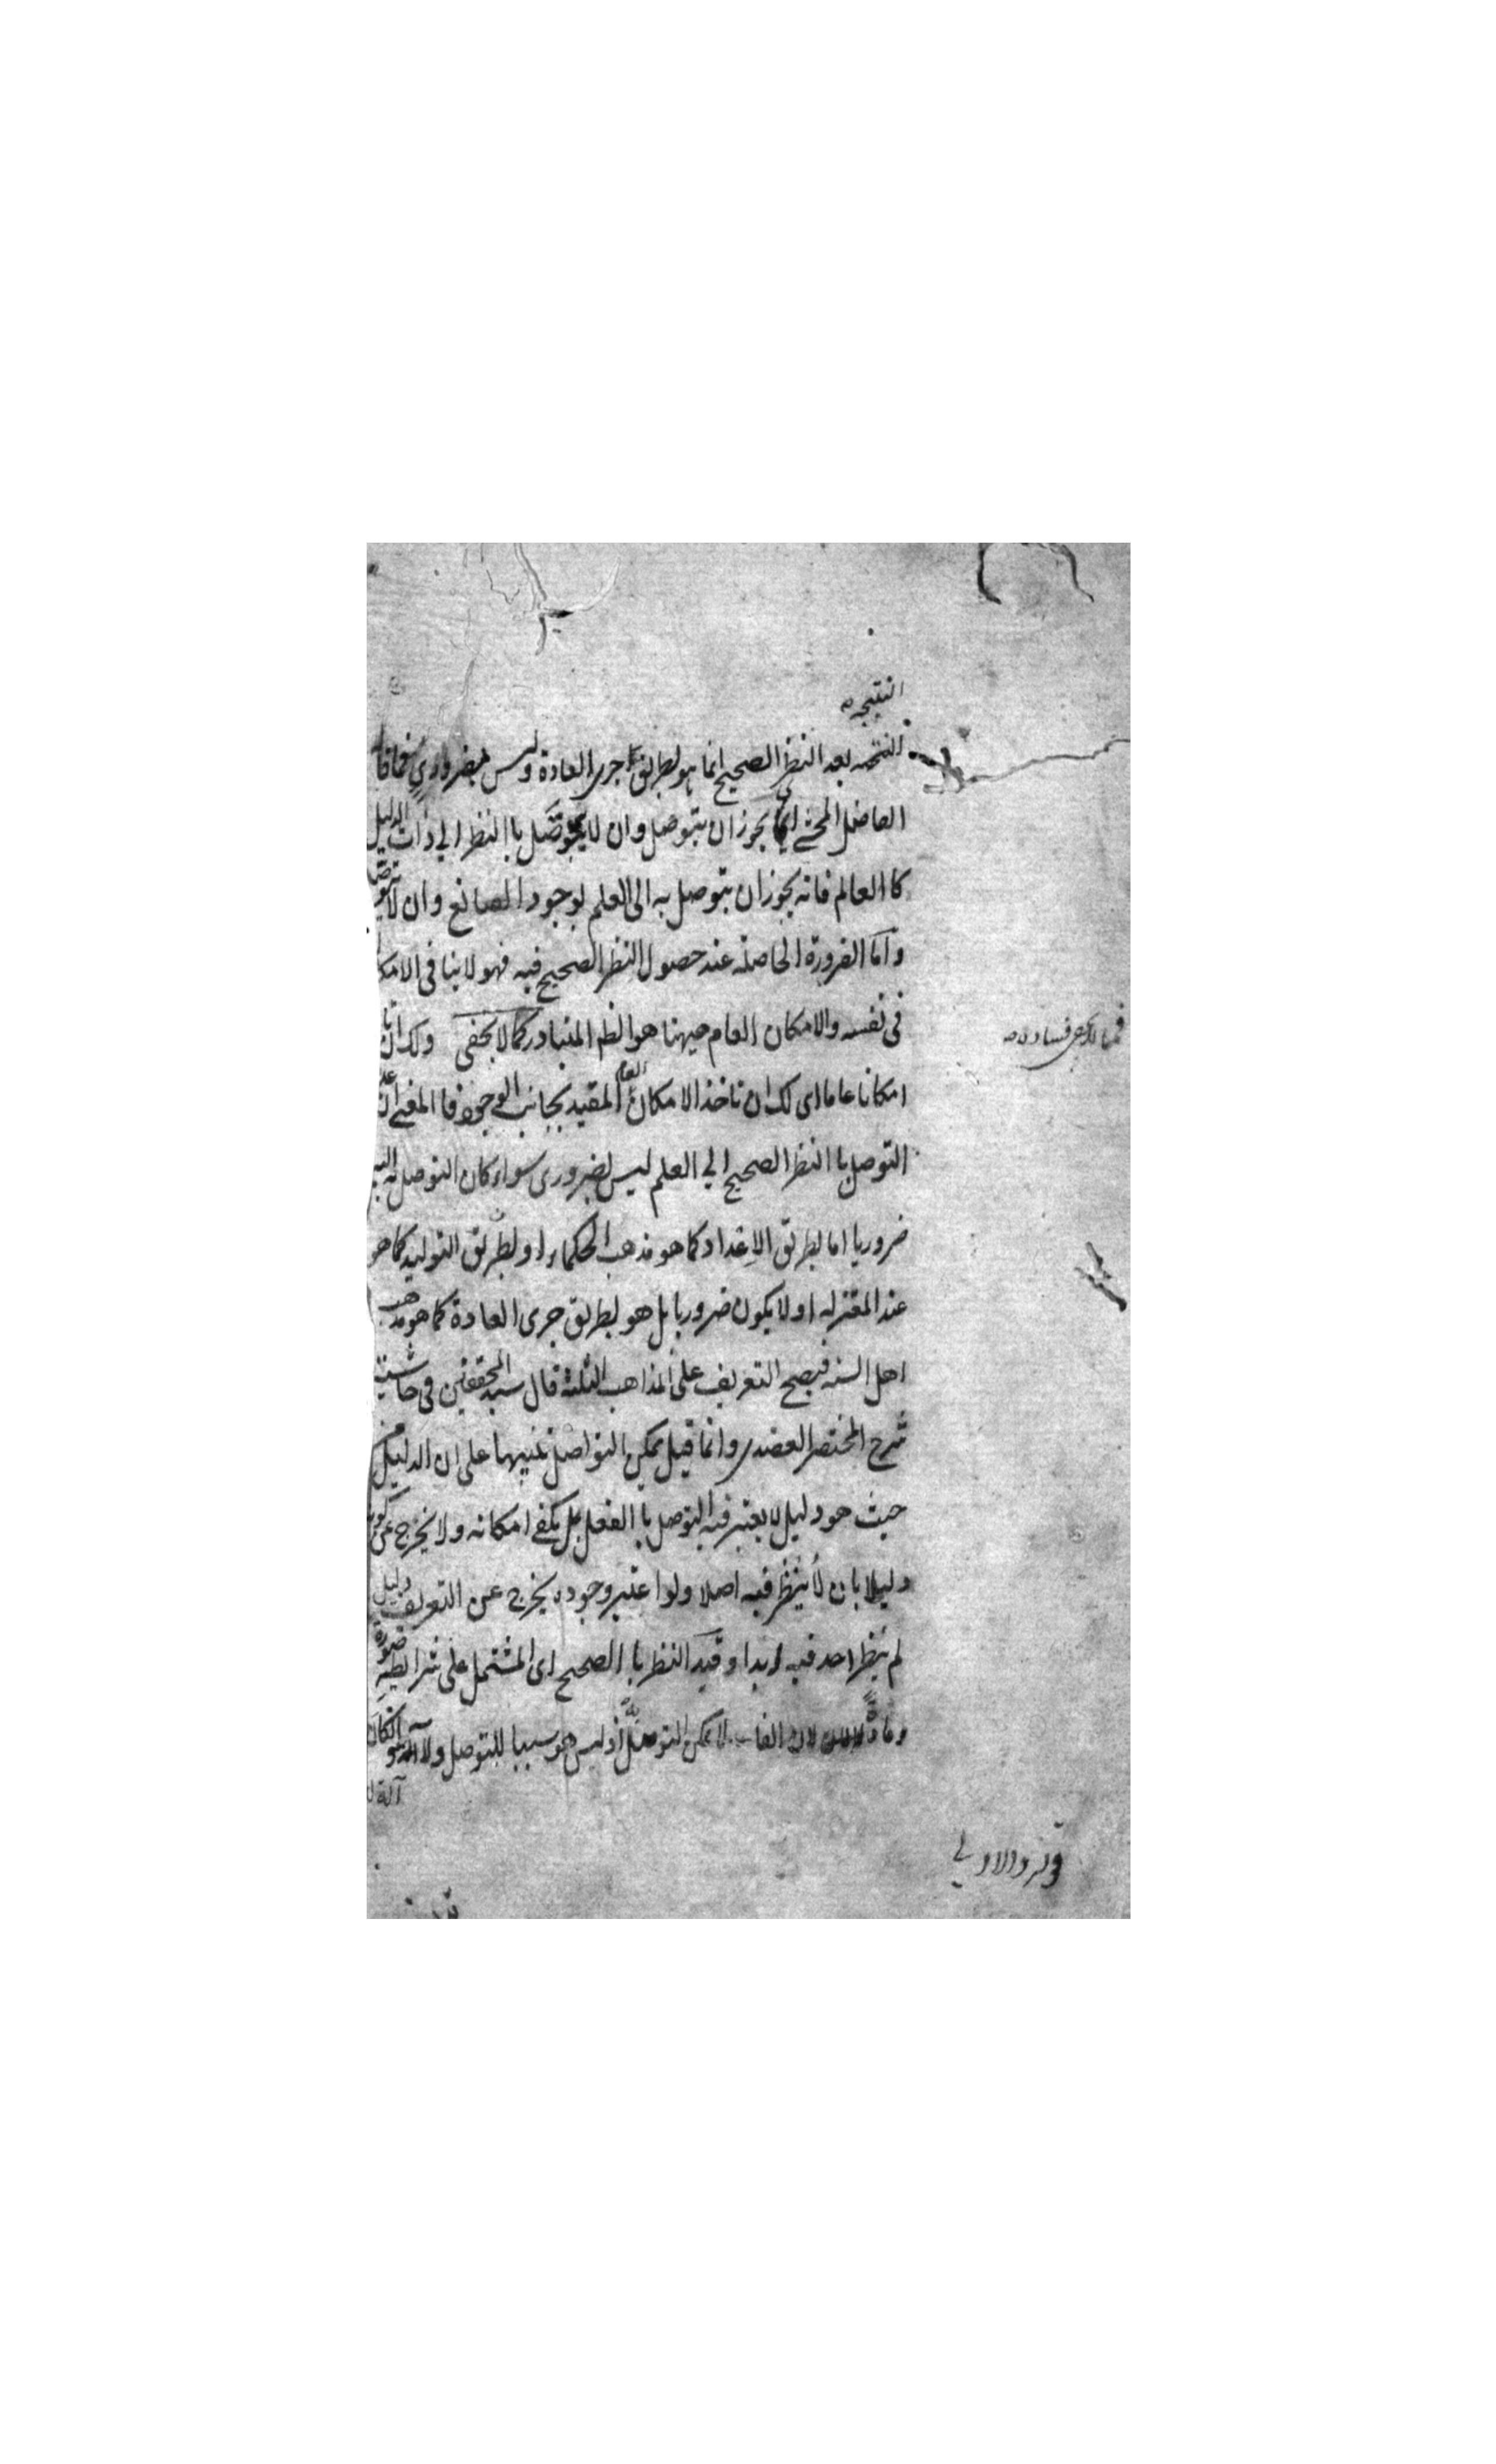 النتيجه
النتيجه بعد النظر الصحيح انما هو بطريق اجرى العادة وليس بضروري فما قال
الفاضل المحشي اي يجوز ان يتوصل وان لا يتوصل با النظر الي ذات الدليل
كا العالم فانه يجوز ان يتوصل به الى العلم بوجود الصانع وان لا يتوصل
واما الضرورة الحاصلة عند حصول النظر الصحيح فيه فهو لا ينافى الامكا
فى نفسه والامكان العام ههنا هو الظم المتبادر كما لا يخفى ولك ان
امكانا عاما اى لك ان تاخذ الامكان العام المقيد بجانب الوجود فا المعنى ان
التوصل با النظر الصحيح الي العلم ليس بضرورى سواء كان التوصل
ضروريا اما بطريق الاعداد كما هو مذهب الحكماء او بطريق التوليد كما هو
عند المعتزله او لا يكون ضروريا بل هو بطريق جرى العادة كما هو مذهب
اهل السنه فيصح التعريف على المذاهب الثلثة قال سيد المحققين فى حاشية
شرح المختصر العضدى وانما قيل يمكن التواصل تنبيها على ان الدليل من
حيث هو دليل لا يعتبر فيه التوصل با الفعل بل يكفى امكانه ولا يخرج عن كونه
دليلا بان لا ينظر فيه اصلا ولو اعتبر وجوده يخرج عن التعريف دليل
لم ينظر احد فيه ابدا وقيد النظر با الصحيح اى المشتمل على شرائطه صورة
ومادة لان الفا لا يمكن التوصل به اذ ليس هو سببا للتوصل ولا آلة
آلة
قوله والاولي